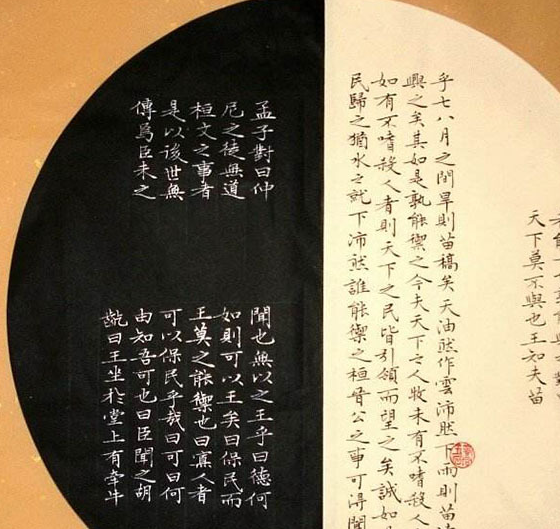 天下莫不與也王知夫苗
乎七八月之間旱則苗槁矣天油然作雲沛然下雨則苗
興之矣其如是孰能禦之今夫天下之人牧未有不嗜殺人
如有不嗜殺人者則天下之民皆引領而望之矣誠如
民歸之猶水之就下沛然誰能禦之桓晉公之事可得聞
孟子對曰仲
尼之徒無道
桓文之事者
是以後世無
傳焉臣未之
聞也無以之王乎曰德何
如則可以王矣曰保民而
王莫之能禦也曰寡人者
可以保民乎哉曰可曰何
由知吾可也曰臣聞之胡
齕曰王坐於堂上有牽牛